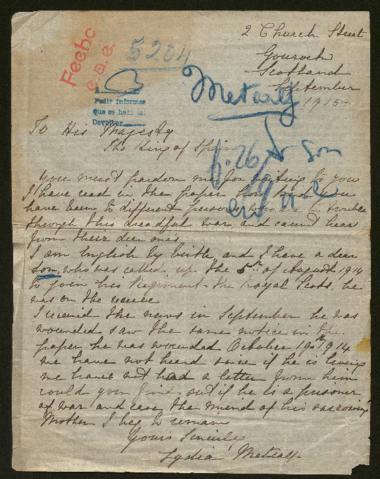 2 Church Street
Gourock
Scotland
September
1915
Fecha
5204
Pedir informes
Devolver
Metcalf
f. 26 son
To His Majesty
The King of Spain
You must pardon me for writing to you
I have read in the paper how you
have been to different
through this dreadful war and cannot hear
from their dear ones
I am English by birth and I have a dear
son, who was called up the 5th of August 1914
to join his Regiment the Royal Scots he
was on the reserve
I received the news in September he was
wounded saw the same notice in the
paper he was wounded October 19th 1914
we have not heard since if he is living
we have not had a letter from him
could you find out if he is a prisoner
of war and ease the mind of his sorrowing
Mother I beg to remain
Yours Sincerely
Lydia Metcalf